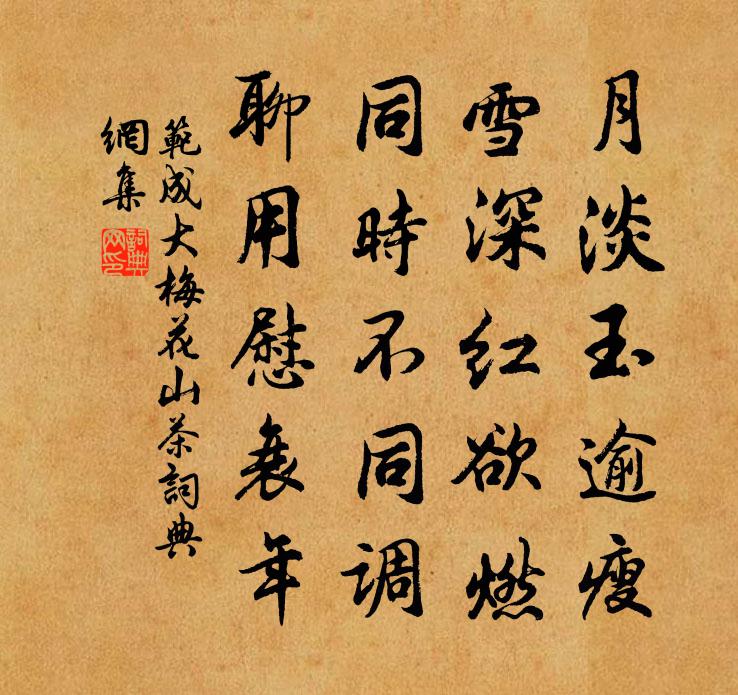 月淡玉逾瘦
雪深红欲燃
同時不同调
聊用慰衰年
範成大梅花山茶詞典
網集
詞典
网印